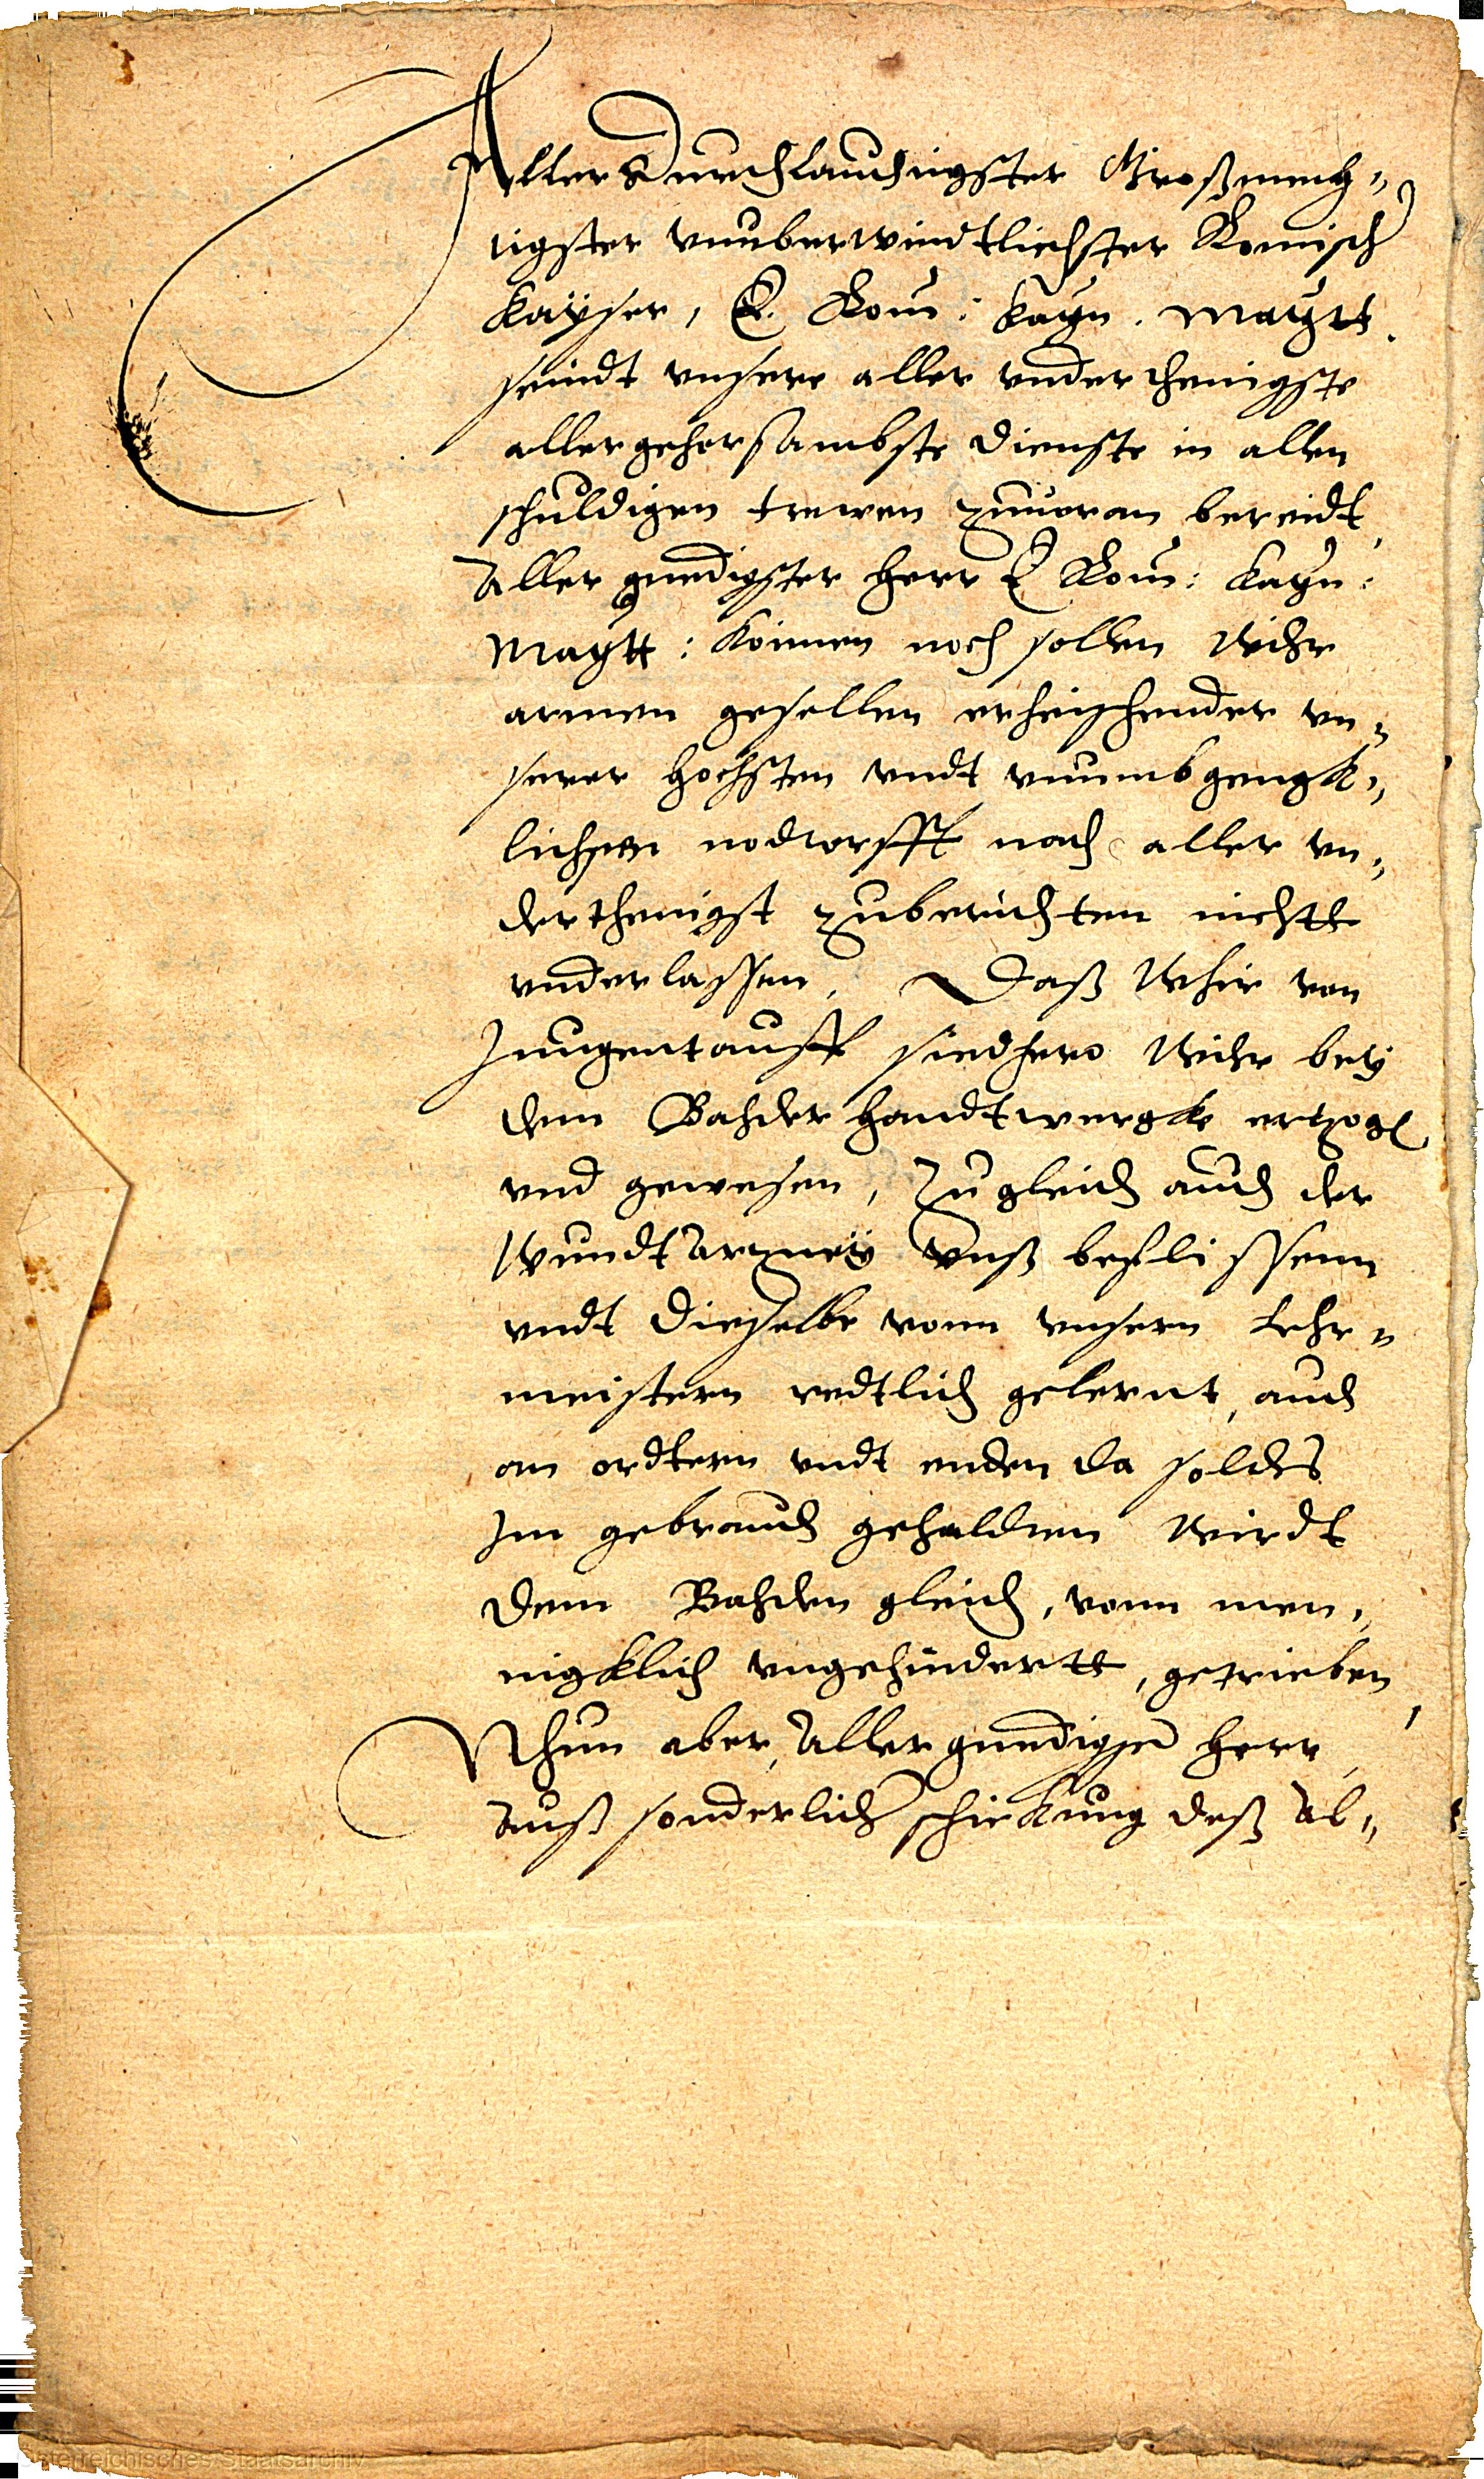 Aller Durchlauchtigster Großmech„
tigster vnuberwindtlichster Romisch
Kayser, E. Rom: kayn. Maytt.
seindt vnsere aller vnderthenigste
allergehorsambste dienste in allen
schuldigen trewen zuuoran bereidt,
Aller gnedigster herr E Rom: kayn:
Maytt: konnen noch sollen wihr
armen gesellen erheischender vn„
serer hochsten vndt vnumbgengk„
lichsten nodtorfft nach aller vn„
derthenigst zuberichten nichtt
vnderlassen, Daß whir von
Jungent auff siedhero wihr bey
dem Bahder handtwergke ertzog
vnd gewesen, Zu gleich auch der
wundt Artzney vnß beflissenn
vndt dieselbe vonn vnsern Lehr„
meistern redtlich gelernt, auch
an ordtern vndt enden da solchs
Im gebrauch gehaldtenn wirdt
dem Bahden gleich, vonn men„
nigklich vngehindertt, getrieben,
Nhun aber, Aller gnedigster herr,
Auß sonderlich schickung deß Al„
Österreichisches Staatsarchiv